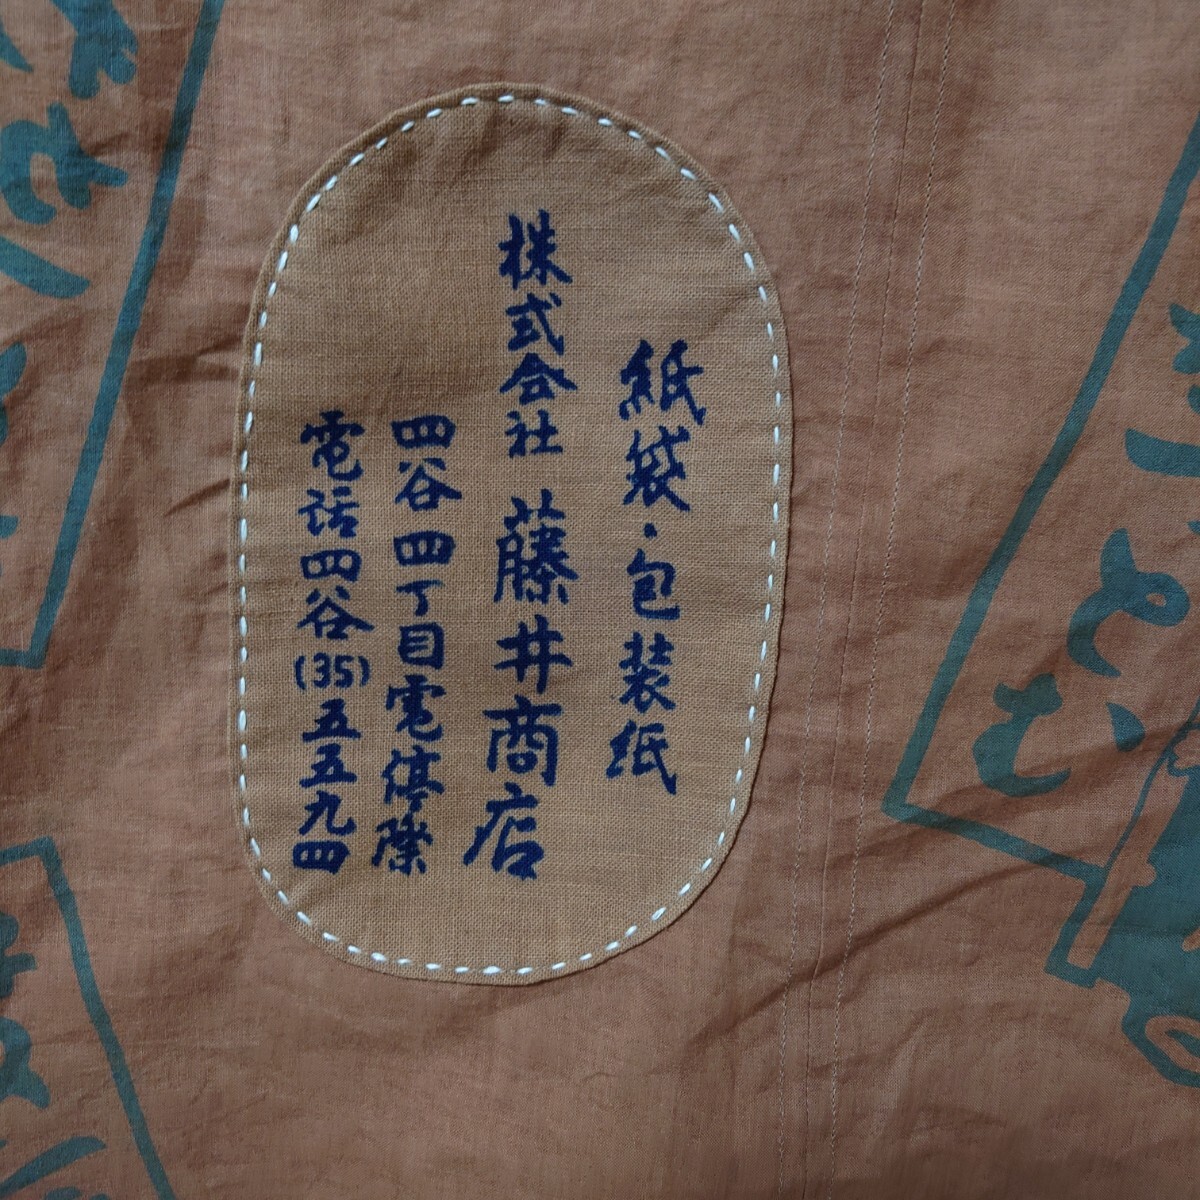 紙袋・包装紙
株式会社 藤井商店
四谷四丁目電停際
電話四谷(35)五五九四
とむ